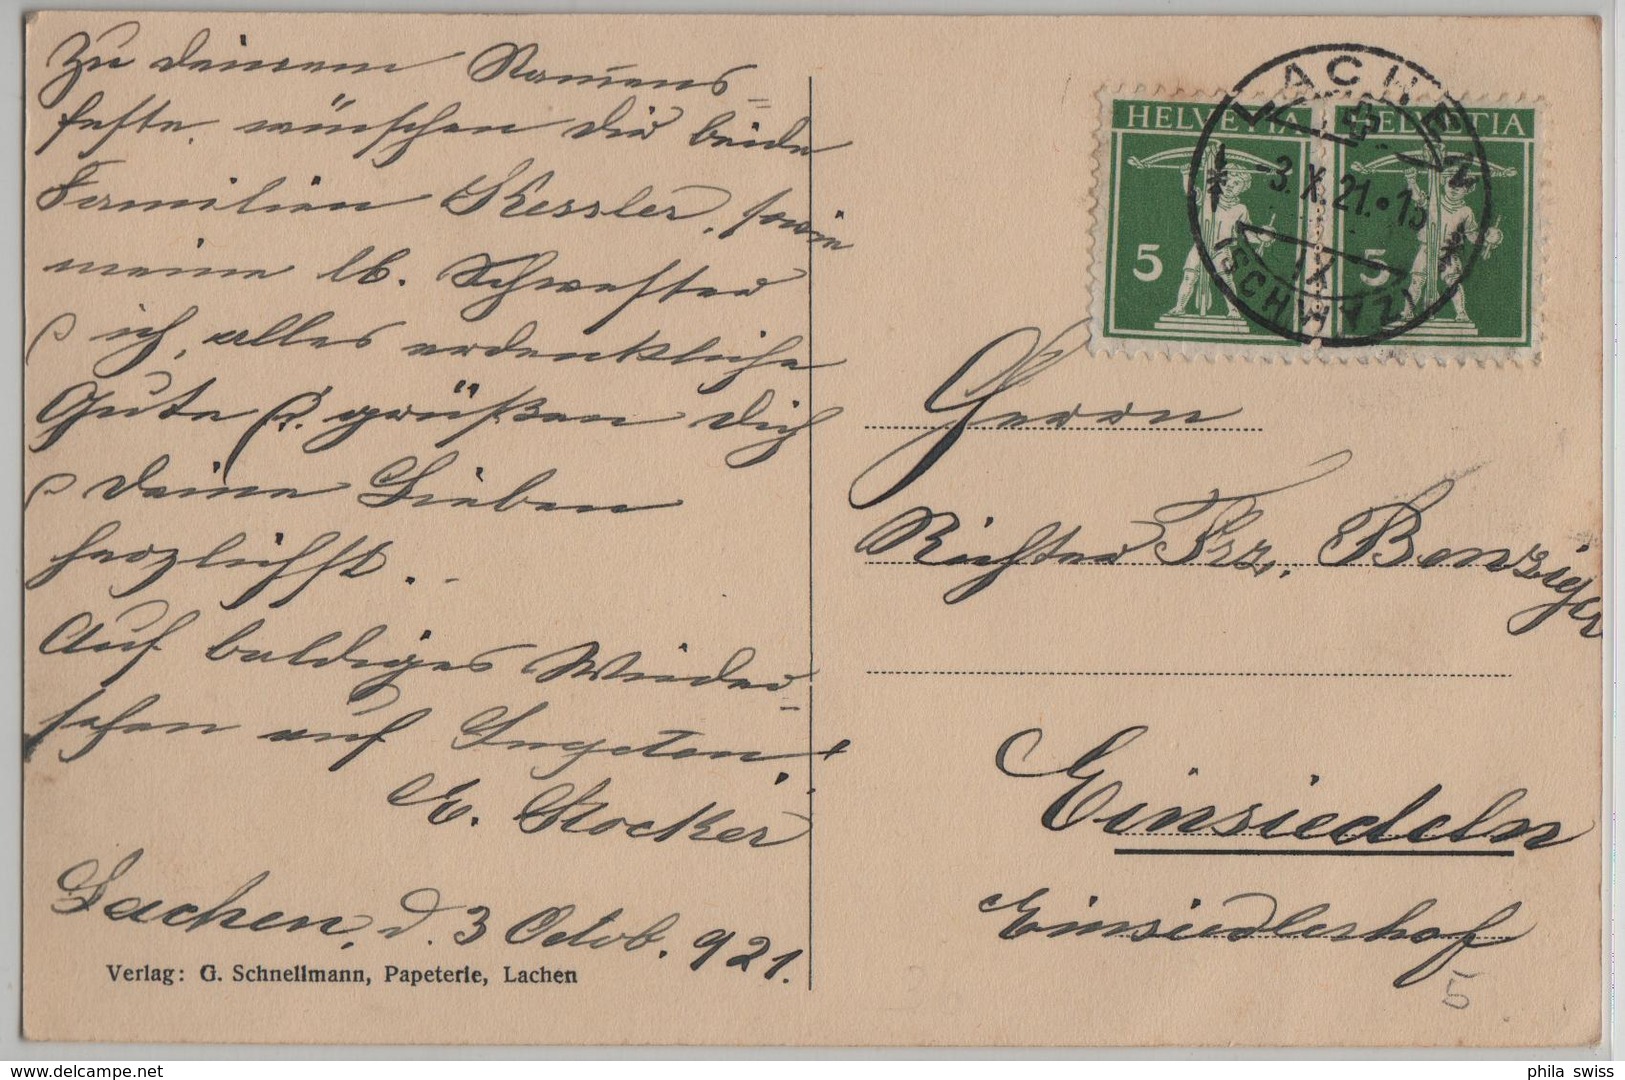 Zu deinem Namens=
feste, wünschen dir beide
Familien Kessler, sowie
meine lb. Schwester
& ich, alles erdenkliche
Gute & grüßen Dich
& deine Lieben
herzlichst.
Auf baldiges Wieder=
sehen auf
E. Stocker
Lachen, d. 3 Octob. 921.
Verlag: G. Schnellmann, Papeterie, Lachen
HELVETIA
5
HELVETIA
5
LACHEN
-3.X.21.
IX
(SCHWYZ)
Herrn
Richter Frz. Benziger
Einsiedeln
Einsiedlerhof
5
delcampe.net
phila swiss